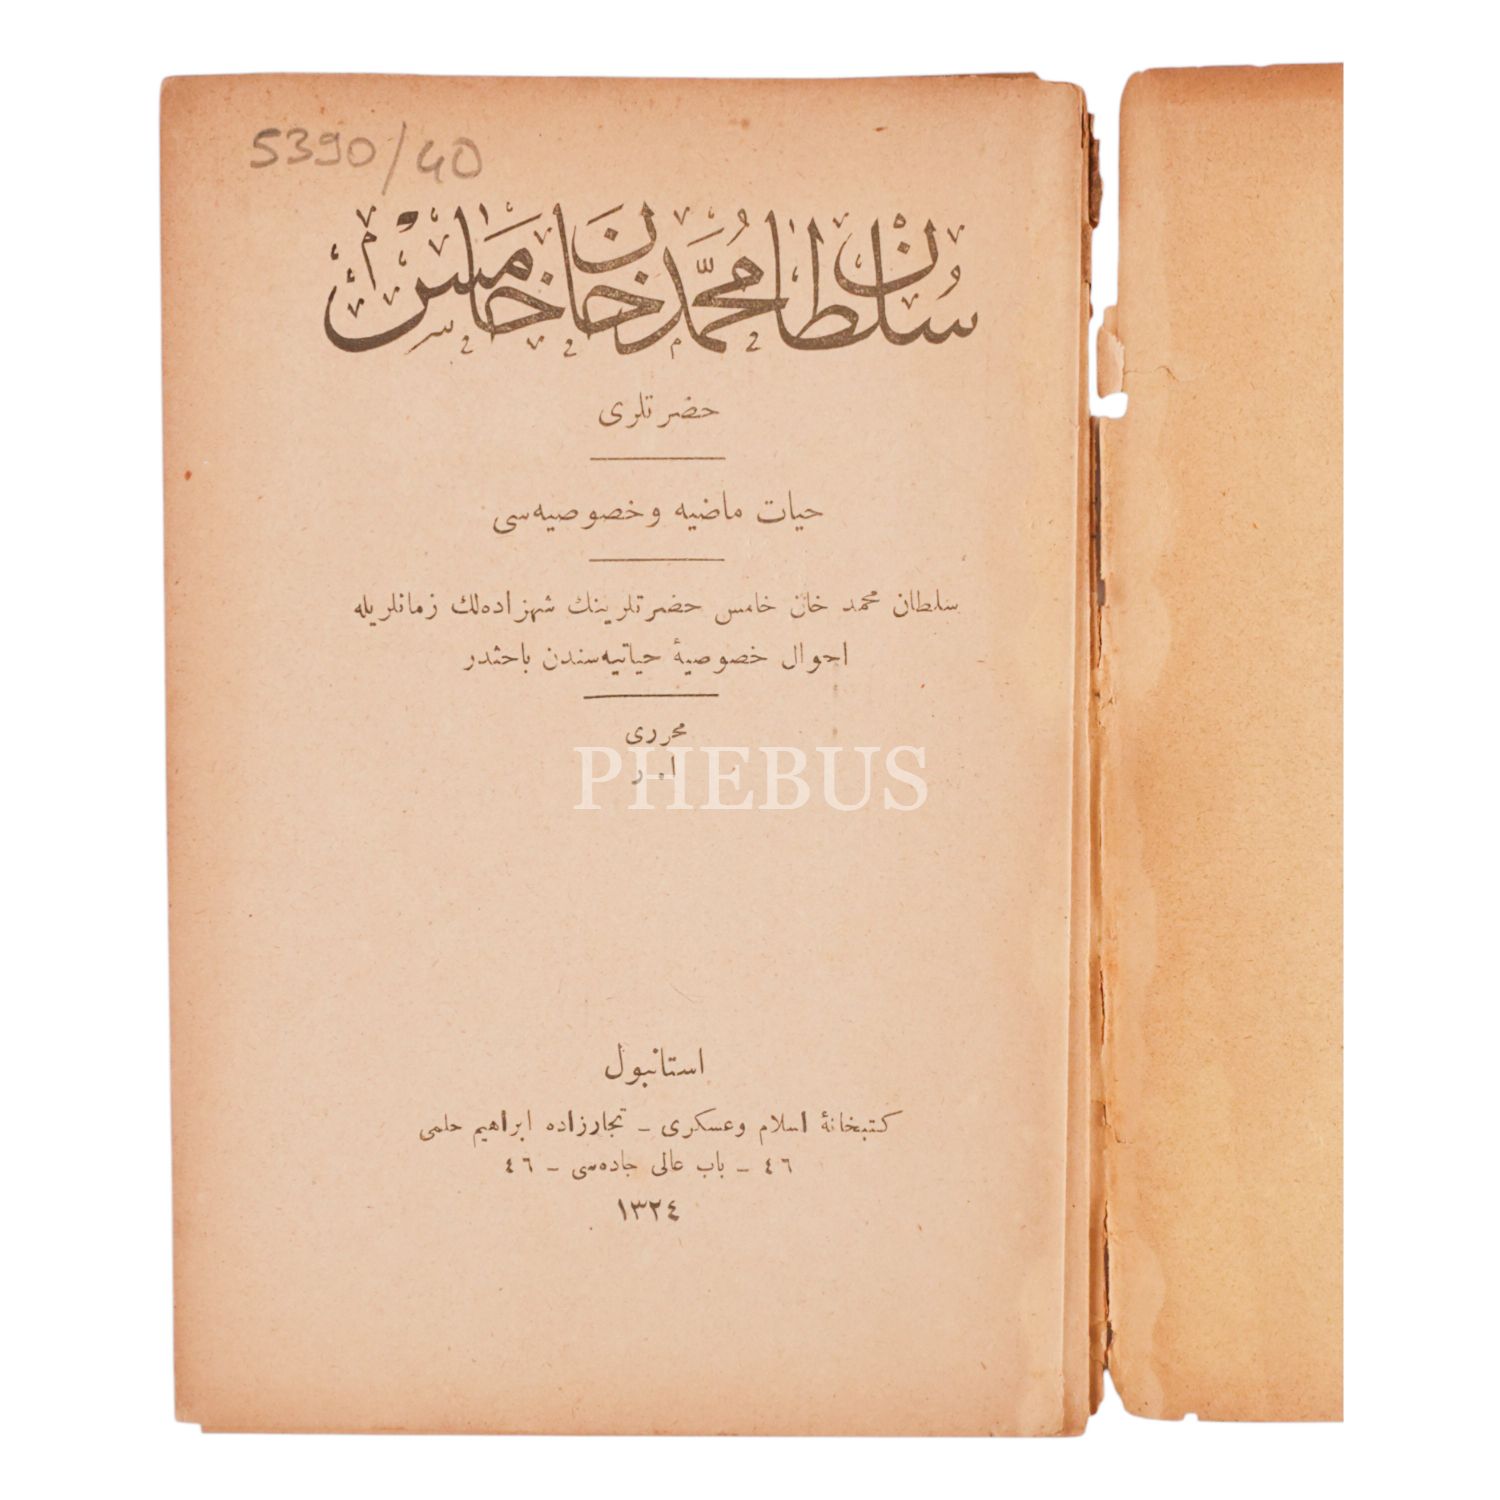 5390/40
سلطان محمد خان خامس
حضرتلری
حیات ماضیه و خصوصیه‌سی
سلطان محمد خان خامس حضرتلرینك شهزاده‌لك زمانلریله
احوال خصوصیۀ حیاتیه‌سندن باحثدر
محرری
PHEBUS
استانبول
كتبخانۀ اسلام وعسكری – تجارزاده ابراهیم حلمی
٤٦ – باب عالی جاده‌سی – ٤٦
١٣٢٤